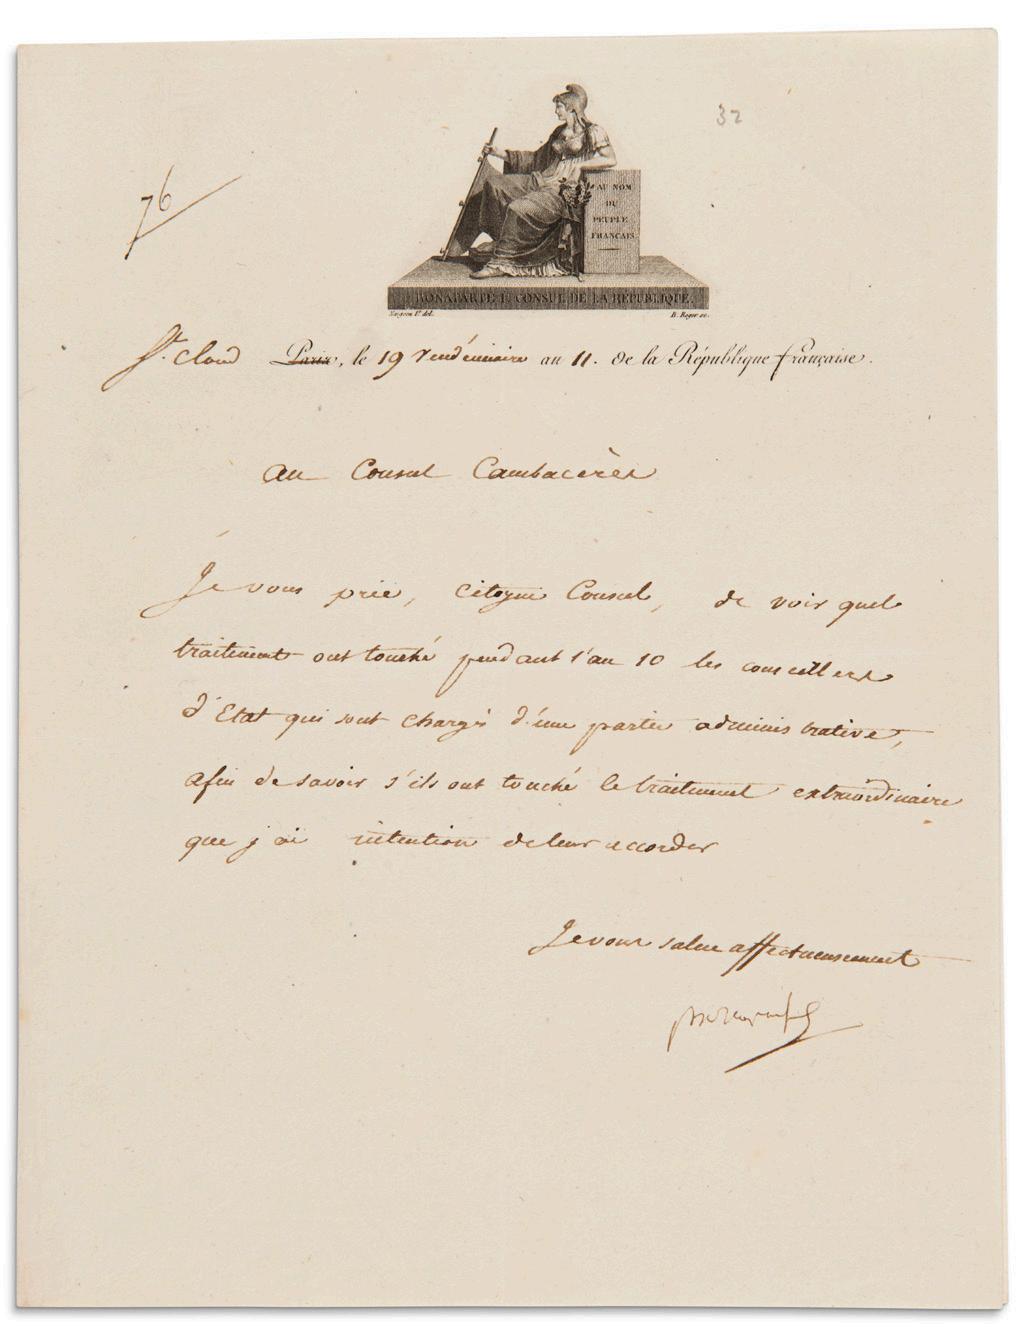 32
76
AU NOM
DU
PEUPLE
FRANÇAIS.
BONAPARTE 1er CONSUL DE LA RÉPUBLIQUE.
Naigeon Pt. del. B. Roger sc.
St. Cloud Paris, le 19 Vendémiaire an 11. de la République française.
au Consul Cambacérès
Je vous prie, citoyen Consul, de voir quel
traitement ont touché pendant l'an 10 les conseillers
d'Etat qui sont chargés d'une partie administrative,
afin de savoir s'ils ont touché le traitement extraordinaire
que j'ai intention de leur accorder
Je vous salue affectueusement